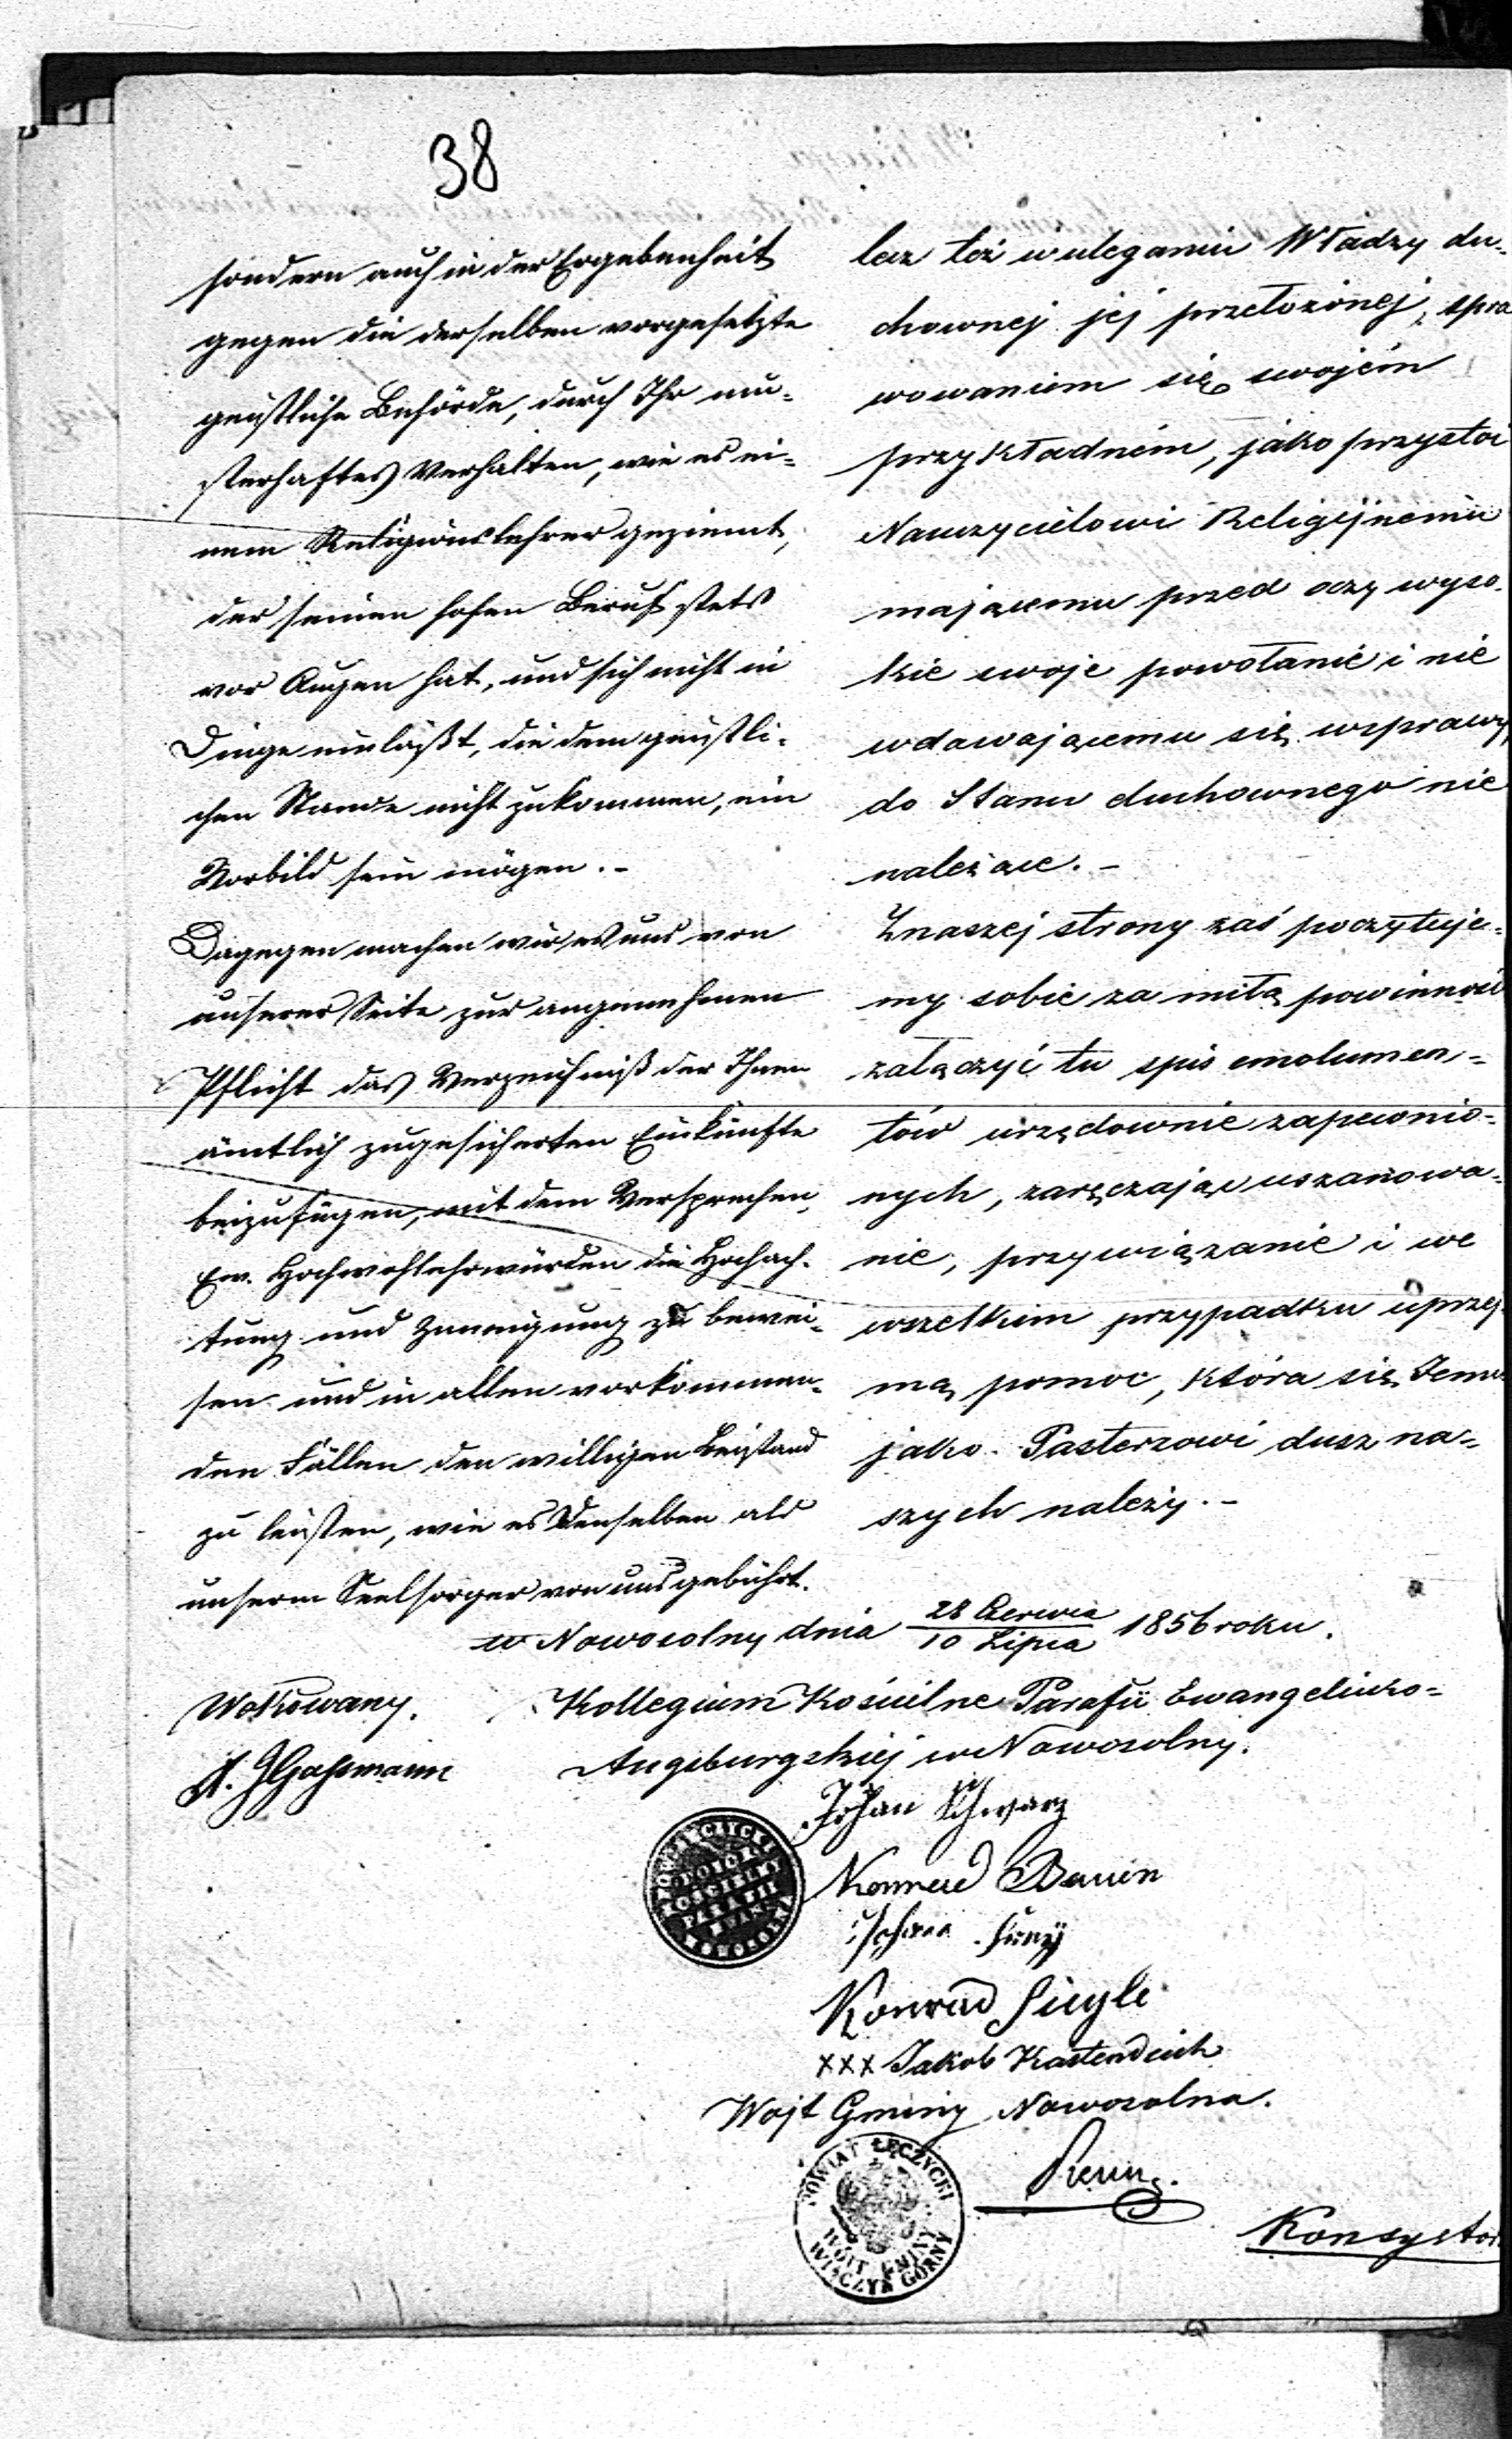 38
sondern auch in der Ergebenheit
gegen die derselben vorgesetzte
geistliche Behörde, durch Ihr mu-
sterhaftes Verhalten, wie es ei-
nem Religionslehrer geziemt,
der seinen hohen Beruf stets
vor Augen hat, und sich nicht in
Dinge einläßt, die dem geistli-
chen Stande nicht zukommen, ein
Vorbild sein mögen. -
Dagegen machen wir es uns von
unserer Seite zur angenehmen
Pflicht das Verzeichniß der Ihnen
ämtlich zugesicherten Einkünfte
beizufügen, mit dem Versprechen,
Ew. Hochwohlehrwürden die Hochach-
tung und Zuneigung zu bewei-
sen und in allen vorkommen-
den Fällen den willigen Beistand
zu leisten, wie es Denselben als
unserm Seelsorger von uns gebührt.
lecz też w uleganiu Władzy du-
chownej jej przełożonej, spra
wowaniem się swojém
przykładném, jako przystoi
Nauczycielowi Religijnemu
mającemu przed oczy wyso-
kie swoje powołanie i nie
wdawającemu się w sprawy,
do Stanu duchownego nie
należące. -
Z naszej strony zaś poczytuje-
my sobie za miłą powinność
załączyć tu spis emolumen-
tów urzędownie zapewnio-
nych, zaręczając uszanowa-
nie, przywiązanie i we
wszelkim przypadku uprzej
mą pomoc, która się Jemu
jako Pasterzowi dusz na-
szych należy. -
w Nowosolny dnia 28 Czerwca / 10 Lipca 1856 roku.
Wokowany.
Kollegium Kościelne Parafii Ewangelicko-
Augsburgskiej w Nowosolny.
Johan Schwarz
Konrad
Konrad Siegle
XXX Jakob Kastendeich
Wojt Gminy Nowosolna.
POWIAT ŁĘCZYCKI
WÓJT GMINY
WIĄCZYŃ GÓRNY
Konsystor